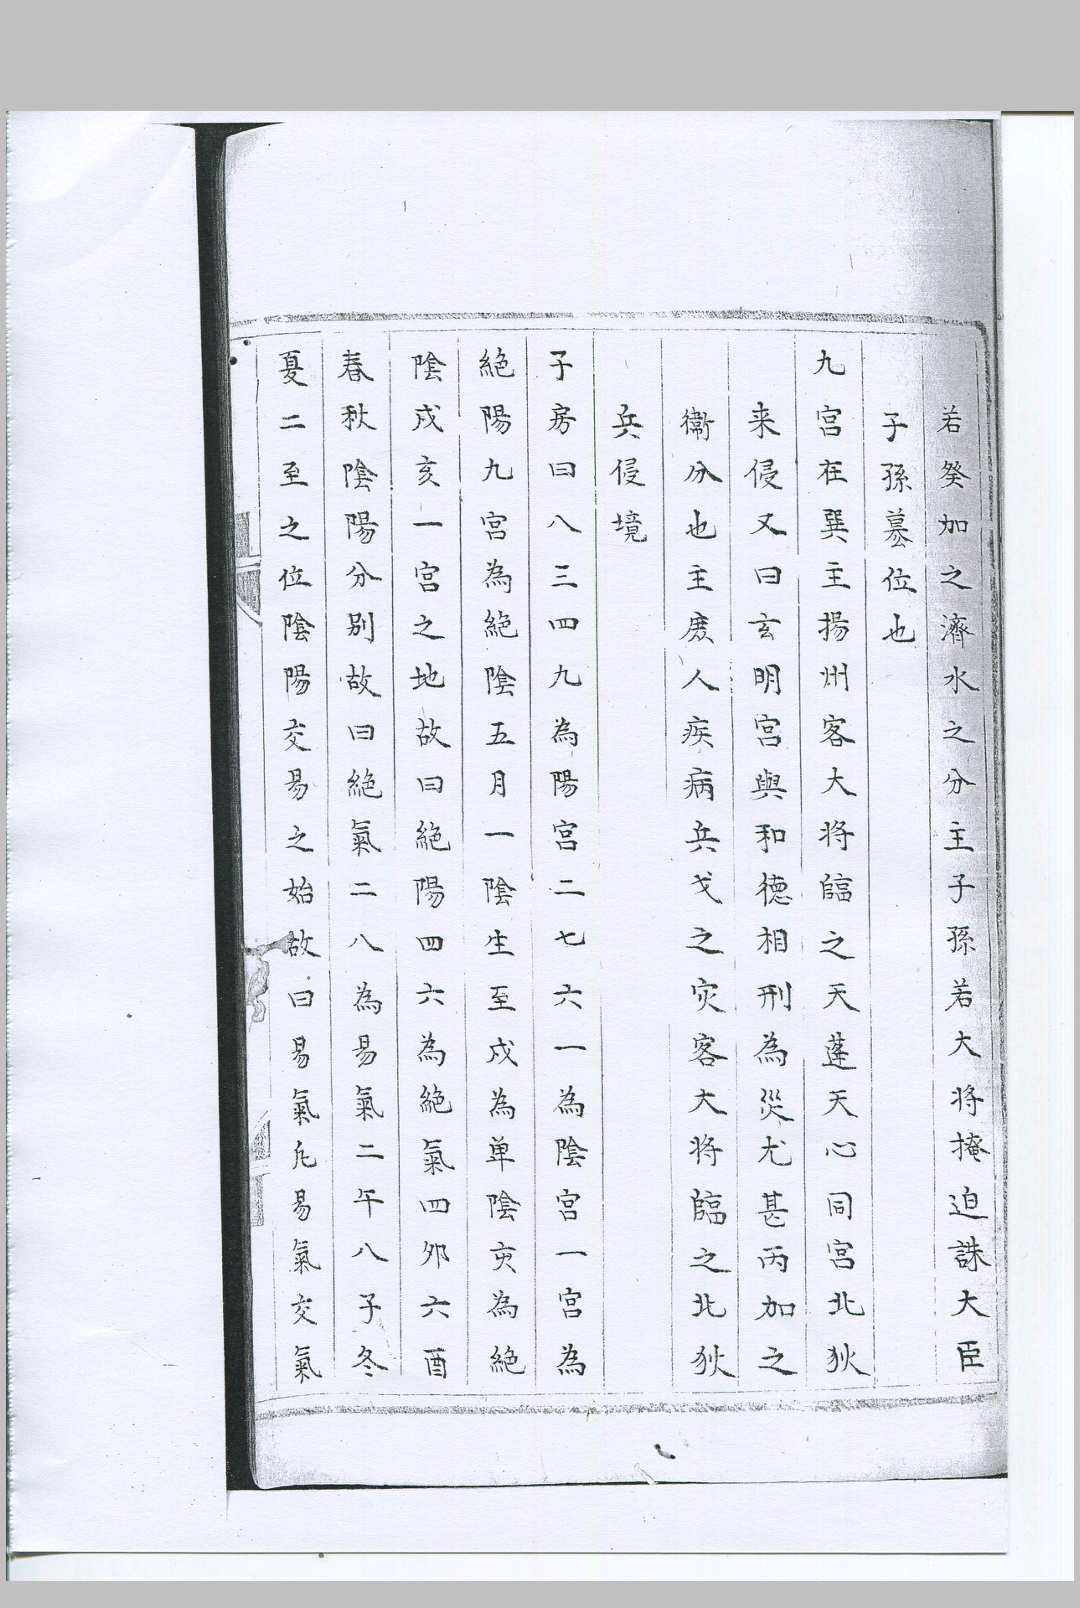 若癸加之濟水之分主子孫若大将掩迫誅大臣
子孫墓位也
九宮在巽主揚州客大将臨之天蓬天心同宮北狄
来侵又曰玄明宮與和德相刑為災尤甚丙加之
衞分也主庻人疾病兵戈之灾客大将臨之北狄
兵侵境
子房曰八三四九為陽宮二七六一為陰宮一宮為
絶陽九宮為絶陰五月一陰生至戍為单陰亥為絶
陰戍亥一宮之地故曰絶陽四六為絶氣四夘六酉
春秋陰陽分别故曰絶氣二八為易氣二午八子冬
夏二至之位陰陽交易之始故曰易氣凡易氣交氣